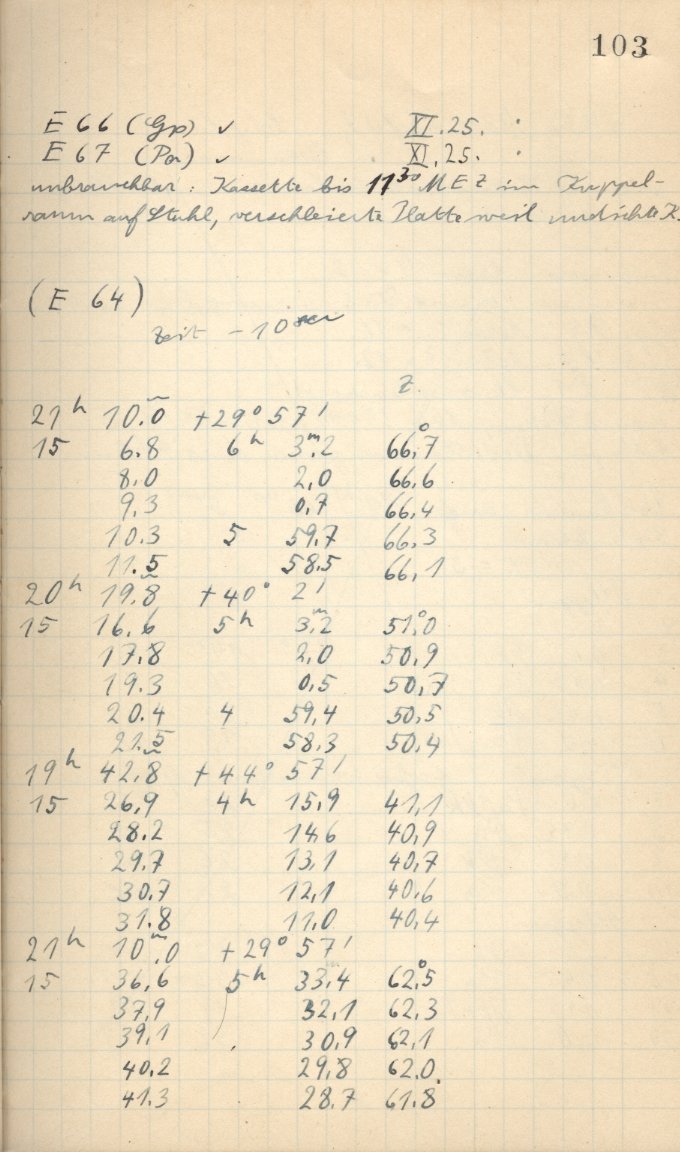 103
E 66 (Gp) ✓ XI.25.
E 67 (Pa) ✓ XI.25.
unbrauchbar: Kassette bis 11³⁰ MEZ im Kuppel-
raum auf Stuhl, verschleierte Platte weil undichte K.
(E 64)
Zeit -10 sec
z
21ʰ 10.ᵐ0 +29° 57'
15 6.8 6ʰ 3ᵐ.2 66°,7
8.0 2,0 66,6
9,3 0,7 66,4
10.3 5 59,7 66,3
11.5 58,5 66,1
20ʰ 19.ᵐ8 +40° 2'
15 16,6 5ʰ 3ᵐ,2 51°,0
17,8 2,0 50,9
19.3 0,5 50,7
20.4 4 59,4 50,5
21.5 58,3 50,4
19ʰ 42ᵐ,8 +44° 57'
15 26,9 4ʰ 15,9 41,1
28.2 14,6 40,9
29.7 13,1 40,7
30.7 12,1 40,6
31.8 11.0 40,4
21ʰ 10ᵐ.0 +29° 57'
15 36,6 5ʰ 33ᵐ,4 62°,5
37,9 32,1 62,3
39,1 30,9 62,1
40,2 29,8 62.0
41.3 28.7 61.8